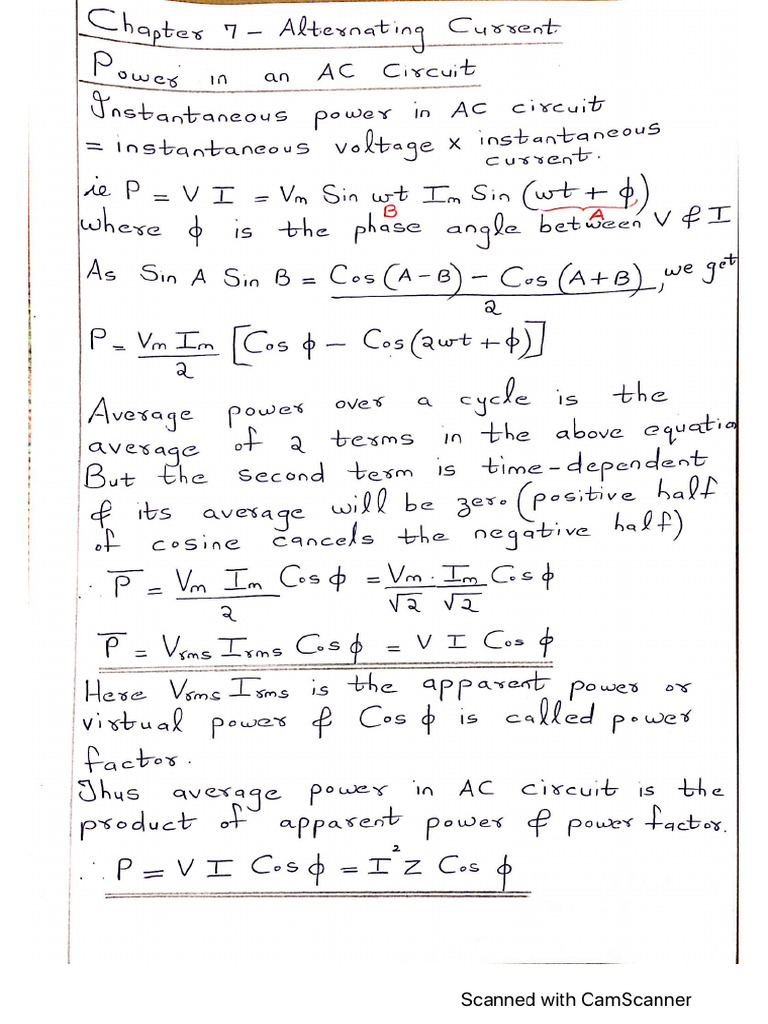 Chapter 7 - Alternating Current.
Power in an AC Circuit
Instantaneous power in AC circuit
= instantaneous voltage x instantaneous current.
ie P = V I = Vm Sin wt Im Sin (wt + ϕ)
B A
where ϕ is the phase angle between V & I
As Sin A Sin B = Cos (A-B) - Cos (A+B) / 2, we get
P = Vm Im / 2 [Cos ϕ - Cos (2wt + ϕ)]
Average power over a cycle is the
average of 2 terms in the above equatio
But the second term is time-dependent
& its average will be zero (positive half
of cosine cancels the negative half)
∴ P̅ = Vm Im / 2 Cos ϕ = Vm / √2 . Im / √2 Cos ϕ
P̅ = Vrms Irms Cos ϕ = V I Cos ϕ
Here Vrms Irms is the apparent power or
virtual power & Cos ϕ is called power
factor.
Thus average power in AC circuit is the
product of apparent power & power factor.
∴ P = V I Cos ϕ = I² Z Cos ϕ
Scanned with CamScanner